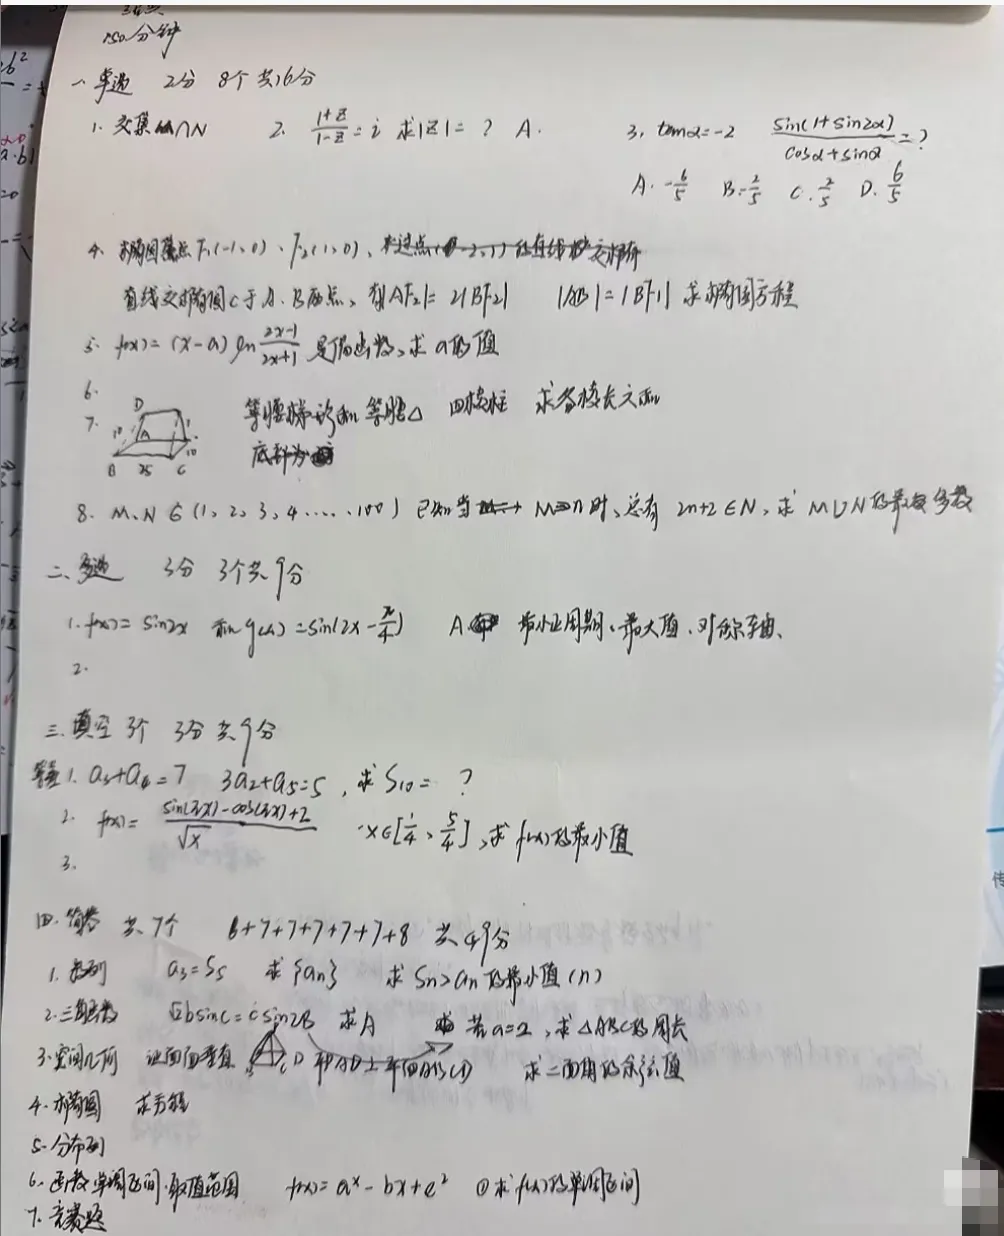 150分钟
一.单选 2分 8个 共16分
1. 交集 M∩N 2. (1+Z)/(1-Z)=i 求|Z|=? A. 3. tanα=-2 sin(1+sin2α)/(cosα+sinα)=?
A. -6/5 B. -2/5 C. 2/5 D. 6/5
4. 椭圆焦点F₁(-1,0)、F₂(1,0)、
直线交椭圆C于A、B两点、若|AF₂|=2|BF₂| |AB|=|BF₁| 求椭圆方程
5. f(x)=(x-a)ln (2x-1)/(2x+1) 是偶函数,求a的值
6.
7. D A B 25 C 10 10 等腰梯形和等腰△ 四棱柱 求各棱长之和
底部为
8. M、N∈(1,2,3,4.....100) 已知当 时、总有2n+2∈N,求M∪N的最多多数
二、多选 3分 3个共9分
1. f(x)=sin2x 和g(x)=sin(2x-π/4) A. 最小正周期、最大值、对称轴、
2.
三.填空 3个 3分 共9分
1. a₃+a₄=7 3a₂+a₅=5,求S₁₀=?
2. f(x)=(sin(πx)-cos(πx)+2)/√x x∈[1/4、5/4],求f(x)的最小值
3.
四.简答 共7个 6+7+7+7+7+7+8 共49分
1. 数列 a₃=S₅ 求{an} 求Sn>an的最小值(n)
2. 三角函数 √2bsinC=csin2B 求A 若a=2,求△ABC的周长
3. 空间几何 证面面垂直 D 平PAD⊥平面ABCD 求二面角的余弦值
4. 椭圆 求方程
5. 分布列
6. 函数单调区间.取值范围 f(x)=aˣ-bx+e² ①求f(x)的单调区间
7. 竞赛题